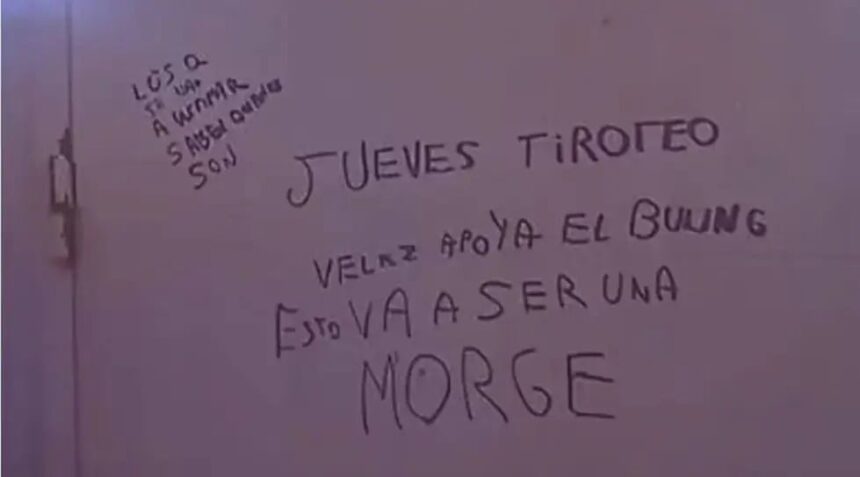 LOS Q
A
SABEN QUIENES
SON
JUEVES TIROTEO
VELAZ APOYA EL BULLING
ESTO VA A SER UNA
MORGE